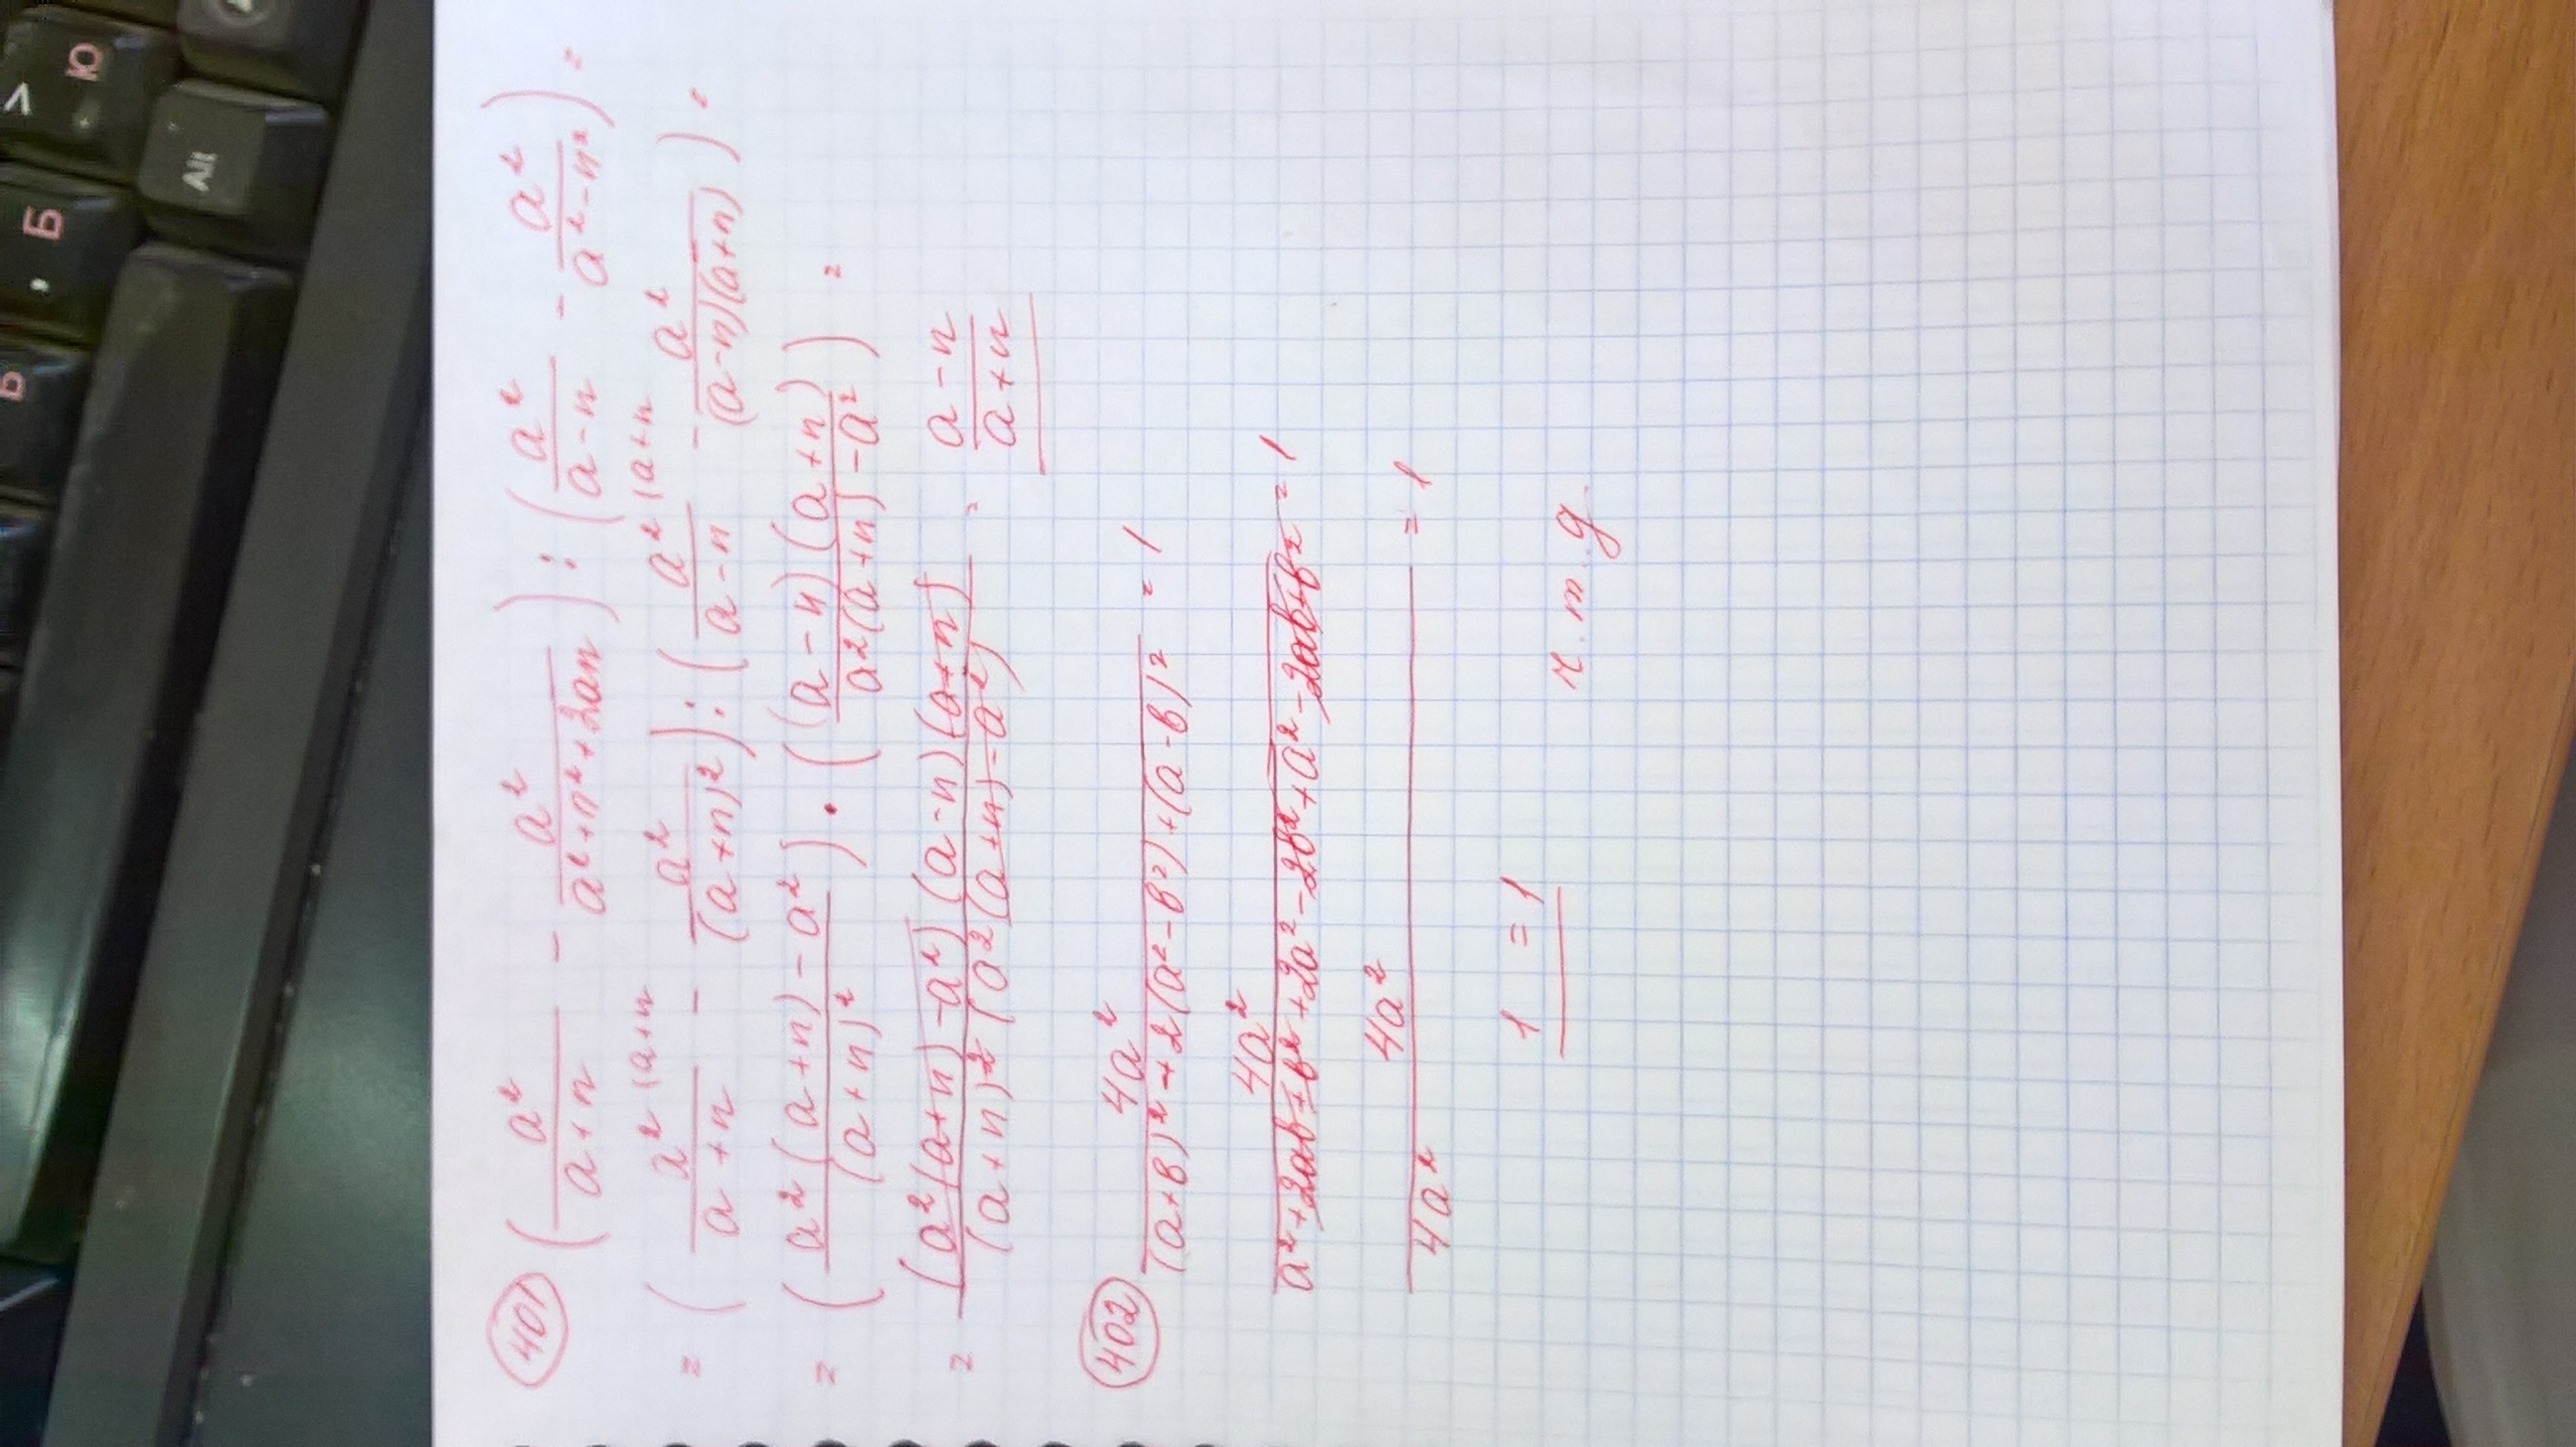 401 (a²/(a+n) - a²/(a²+n²+2an)) : (a²/(a-n) - a²/(a²-n²)) =
= (a²/(a+n) (a+n - a²/(a+n)²) : (a²/(a-n) (a+n - a²/((a-n)(a+n))) =
= ((a²(a+n) - a²)/(a+n)²) · ((a-n)(a+n)/(a²(a+n) - a²)) =
= (a²(a+n) - a²)(a-n)(a+n)/((a+n)²(a²(a+n) - a²)) = (a-n)/(a+n)
402 4a²/((a+b)²+2(a²-b²)+(a-b)²) = 1
4a²/(a²+2ab+b²+2a²-2b²+a²-2ab+b²) = 1
4a²/4a² = 1
1 = 1
ч.т.д.
Ю
Б
Alt